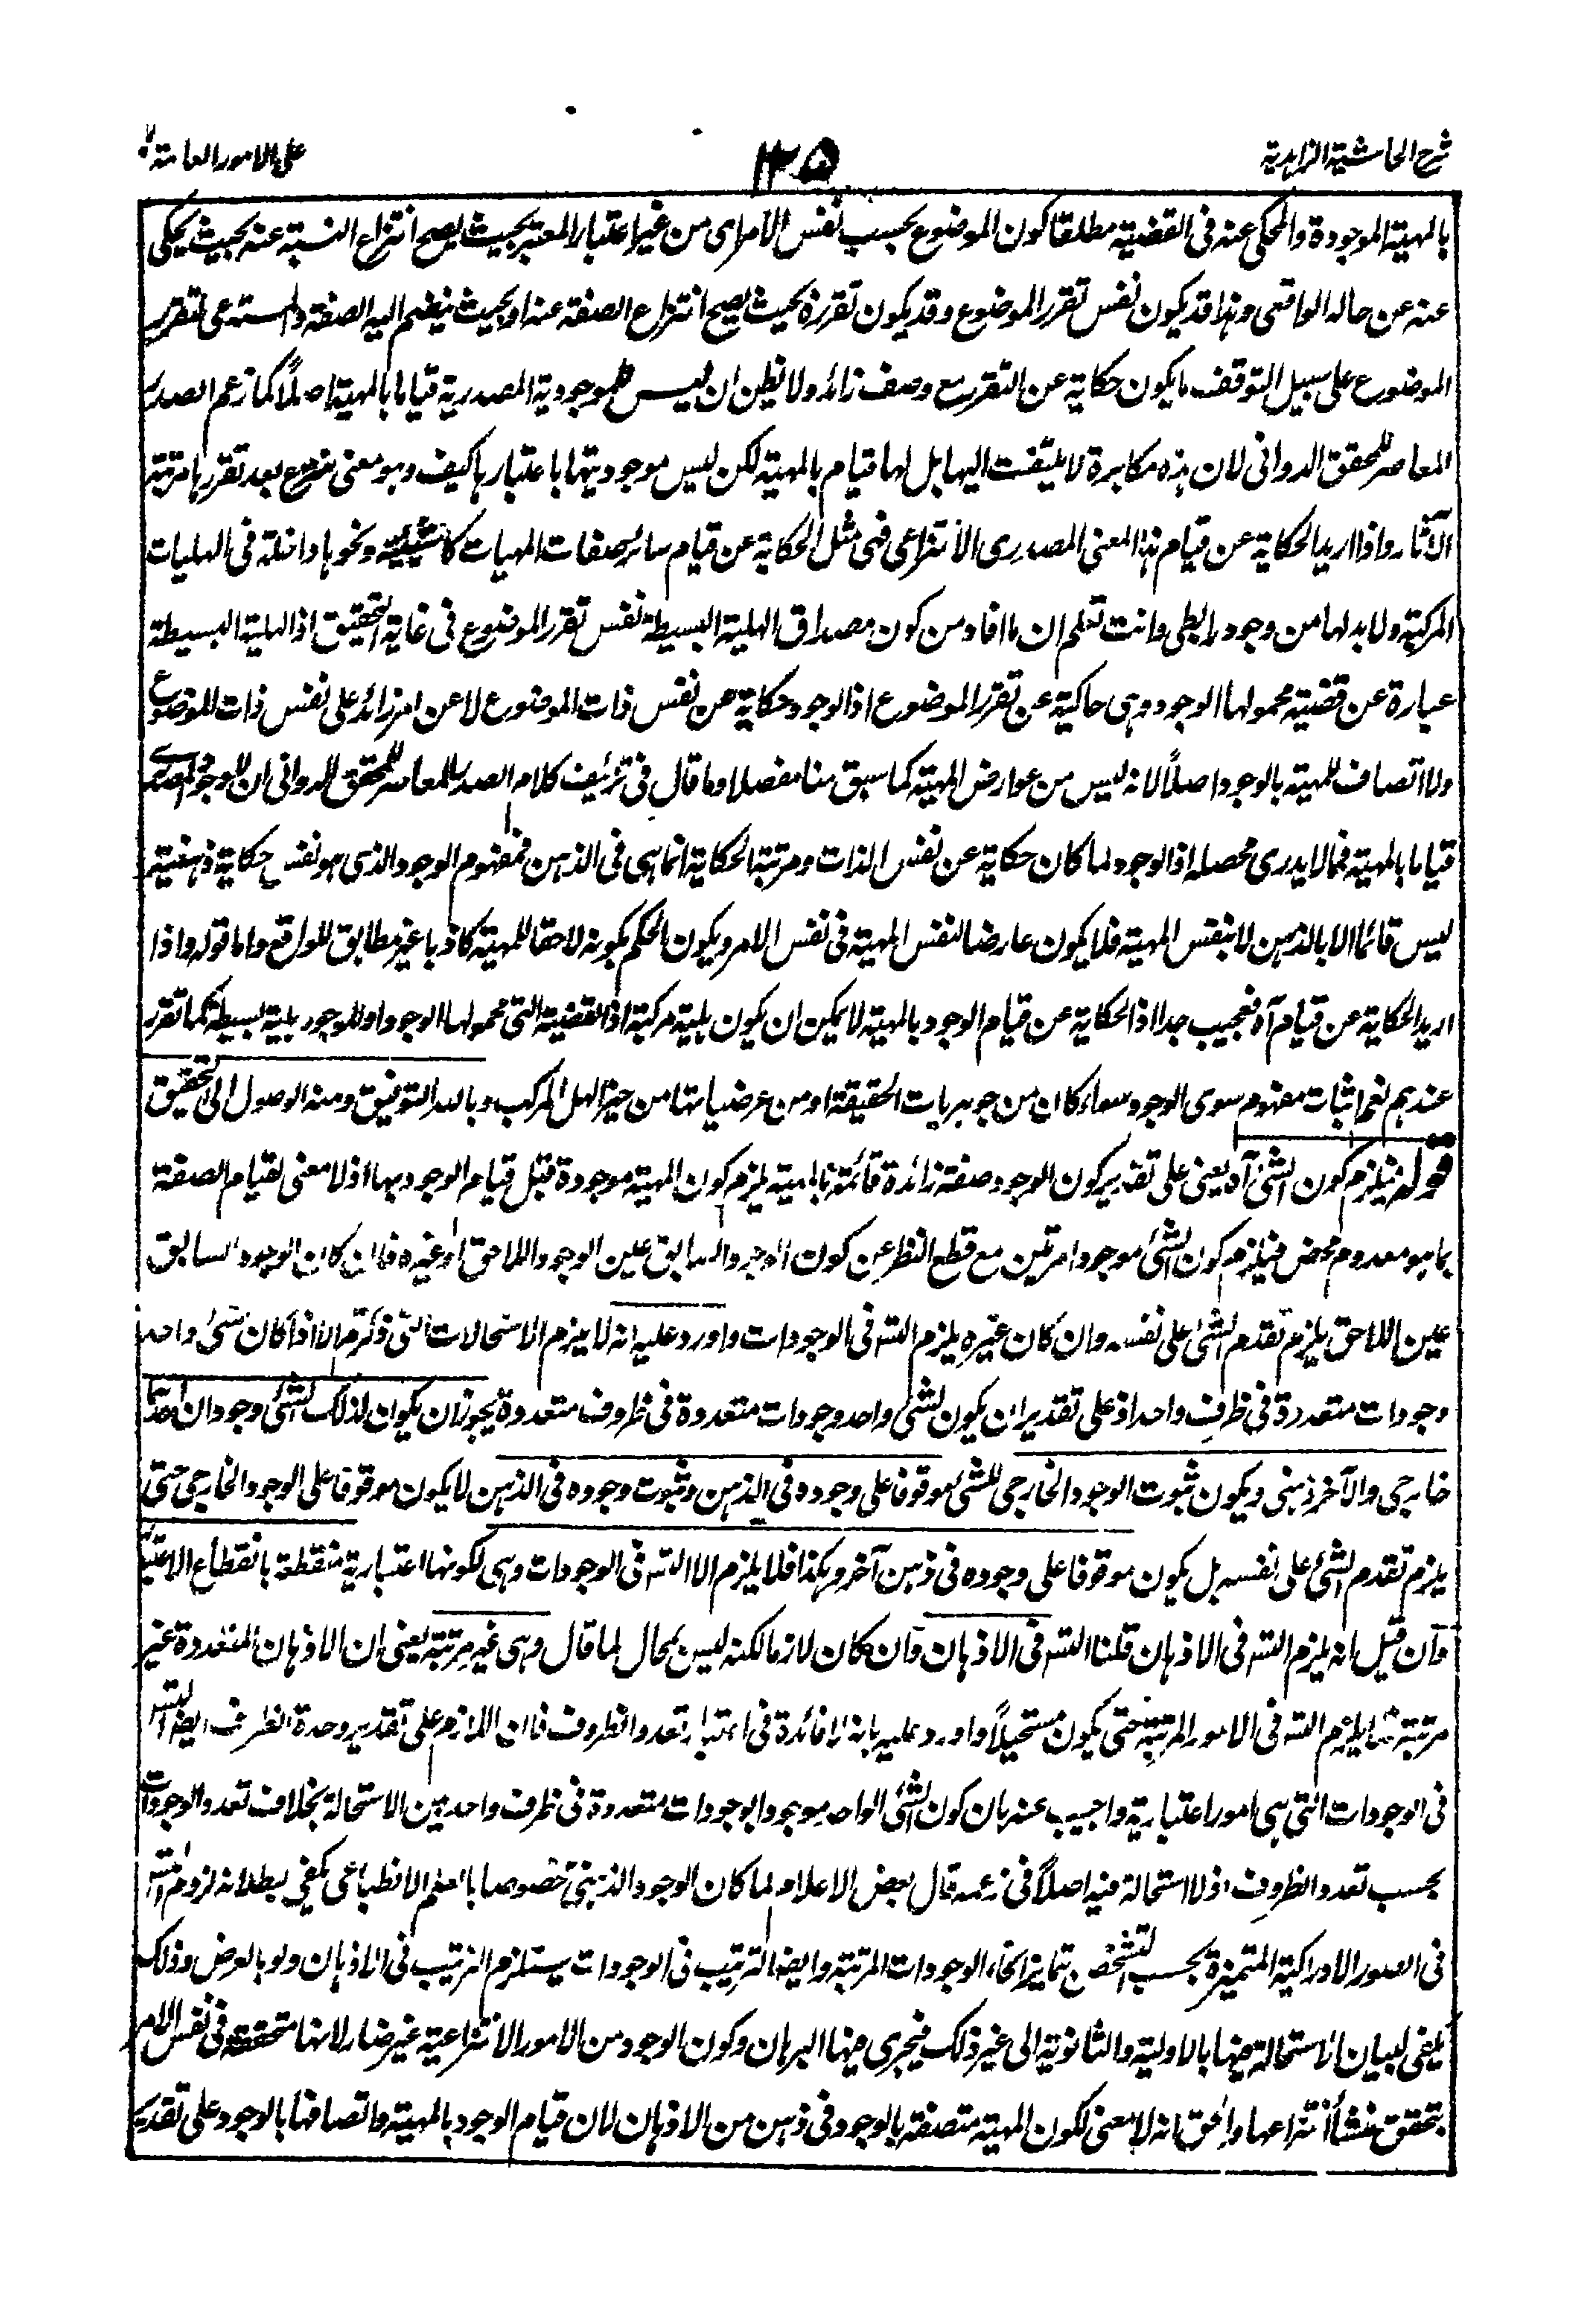 شرح الحاشية الزاهدية
١٣٥
على الامور العامة
بالمهية الموجودة والمحكى عنه فى القضية مطلقا كون الموضوع بحسب نفس الامر اى من غير اعتبار المعتبر بحيث يصح انتزاع النسبة عنه بحيث يحكى
عنه عن حاله الواقعى وهذا قد يكون نفس تقرر الموضوع وقد يكون تقرره بحيث يصح انتزاع الصفة عنه او بحيث ينضم اليه الصفة والمستدعى لتقرر
الموضوع على سبيل التوقف ما يكون حكاية عن التقرر مع وصف زائد ولا تظن ان ليس للموجودية المصدرية قياما بالمهية اصلاً كما زعم الصدر
المعاصر للمحقق الدوانى لان هذه مكابرة لا يلتفت اليها بل لها قيام بالمهية لكن ليس موجوديتها باعتبارها كيف وهو معنى ينتزع بعد تقررها مرتبة
الآثار واذا اريد الحكاية عن قيام هذا المعنى المصدرى الانتزاعى فهى مثل الحكاية عن قيام سائر صفات المهيات كالشيئية ونحوها داخلة فى الهليات
المركبة ولا بد لها من وجود رابطى وانت تعلم ان ما افاد من كون مصداق الهلية البسيطة نفس تقرر الموضوع فى غاية التحقيق اذ الهلية البسيطة
عبارة عن قضية محمولها الوجود وهى حاكية عن تقرر الموضوع اذ الوجود حكاية عن نفس ذات الموضوع لا عن امر زائد على نفس ذات الموضوع
ولا اتصاف للمهية بالوجود اصلاً لانه ليس من عوارض المهية كما سبق منا مفصلا وما قال فى تزئيف كلام الصدر المعاصر للمحقق الدوانى ان للوجود المصدرى
قياما بالمهية فمما لا يدرى محصله اذ الوجود لما كان حكاية عن نفس الذات ومرتبة الحكاية انما هى فى الذهن فمفهوم الوجود الذى هو نفس حكاية ذهنية
ليس قائما الا بالذهن لا بنفس المهية فلا يكون عارضا لنفس المهية فى نفس الامر ويكون الحكم بكونه لاحقا للمهية كاذبا غير مطابق للواقع واما قوله واذا
اريد الحكاية عن قيام آه فعجيب جدا اذ الحكاية عن قيام الوجود بالمهية لا يمكن ان يكون هلية مركبة اذ القضية التى محمولها الوجود او الموجود هلية بسيطة كما تقرر
عندهم نعم اثبات مفهوم سوى الوجود سواء كان من جوهريات الحقيقة او من عرضياتها من حيز الهل المركب وبالله التوفيق ومنه الوصول الى التحقيق
قوله فيلزم كون الشئ آه يعنى على تقدير كون الوجود صفة زائدة قائمة بالمهية يلزم كون المهية موجودة قبل قيام الوجود بها اذ لا معنى لقيام الصفة
بما هو معدوم محض فيلزم كون الشئ موجودا مرتين مع قطع النظر عن كون الوجود السابق عين الوجود اللاحق او غيره فان كان الوجود السابق
عين اللاحق يلزم تقدم الشئ على نفسه وان كان غيره يلزم التس فى الوجودات واورد عليه انه لا يلزم الاستحالات التى ذكرتم الا اذا كان لشئ واحد
وجودات متعددة فى ظرف واحد اذ على تقدير ان يكون لشئ واحد وجودات متعددة فى ظروف متعددة يجوز ان يكون لذلك الشئ وجودان احدهما
خارجى والآخر ذهنى ويكون ثبوت الوجود الخارجى للشئ موقوفا على وجوده فى الذهن وثبوت وجوده فى الذهن لا يكون موقوفا على الوجود الخارجى حتى
يلزم تقدم الشئ على نفسه بل يكون موقوفا على وجوده فى ذهن آخر وهكذا فلا يلزم الا التس فى الوجودات وهى لكونها اعتبارية منقطعة بانقطاع الاعتبار
وان قيل انه يلزم التس فى الاذهان قلنا التس فى الاذهان وان كان لازما لكنه ليس بمحال لما قال وهى غير مرتبة يعنى ان الاذهان المتعددة غير
مرتبة فلا يلزم التس فى الامور المرتبة حتى يكون مستحيلاً واورد عليه بانه لا فائدة فى اعتبار تعدد الظروف فان اللازم على تقدير وحدة الظرف ايضا التس
فى الوجودات التى هى امور اعتبارية واجيب عنه بان كون الشئ الواحد موجودا بوجودات متعددة فى ظرف واحد بين الاستحالة بخلاف تعدد الوجودات
بحسب تعدد الظروف اذ لا استحالة فيه اصلاً فى زعمه قال بعض الاعلام لما كان الوجود الذهنى خصوصا بالعلم الانطباعى يكفى بطلانه لزوم التس
فى الصور الادراكية المتميزة بحسب التشخص تمايز انحاء الوجودات المرتبة وايضا الترتيب فى الوجودات يستلزم الترتيب فى الاذهان ولو بالعرض وذلك
يكفى لبيان الاستحالة فيها بالاولية والثانوية الى غير ذلك فيجرى فيها البرهان وكون الوجود من الامور الانتزاعية غير ضار لانها متحققة فى نفس الامر
بتحقق منشأ انتزاعها والحق انه لا معنى لكون المهية متصفة بالوجود فى ذهن من الاذهان لان قيام الوجود بالمهية واتصافها بالوجود على تقدير